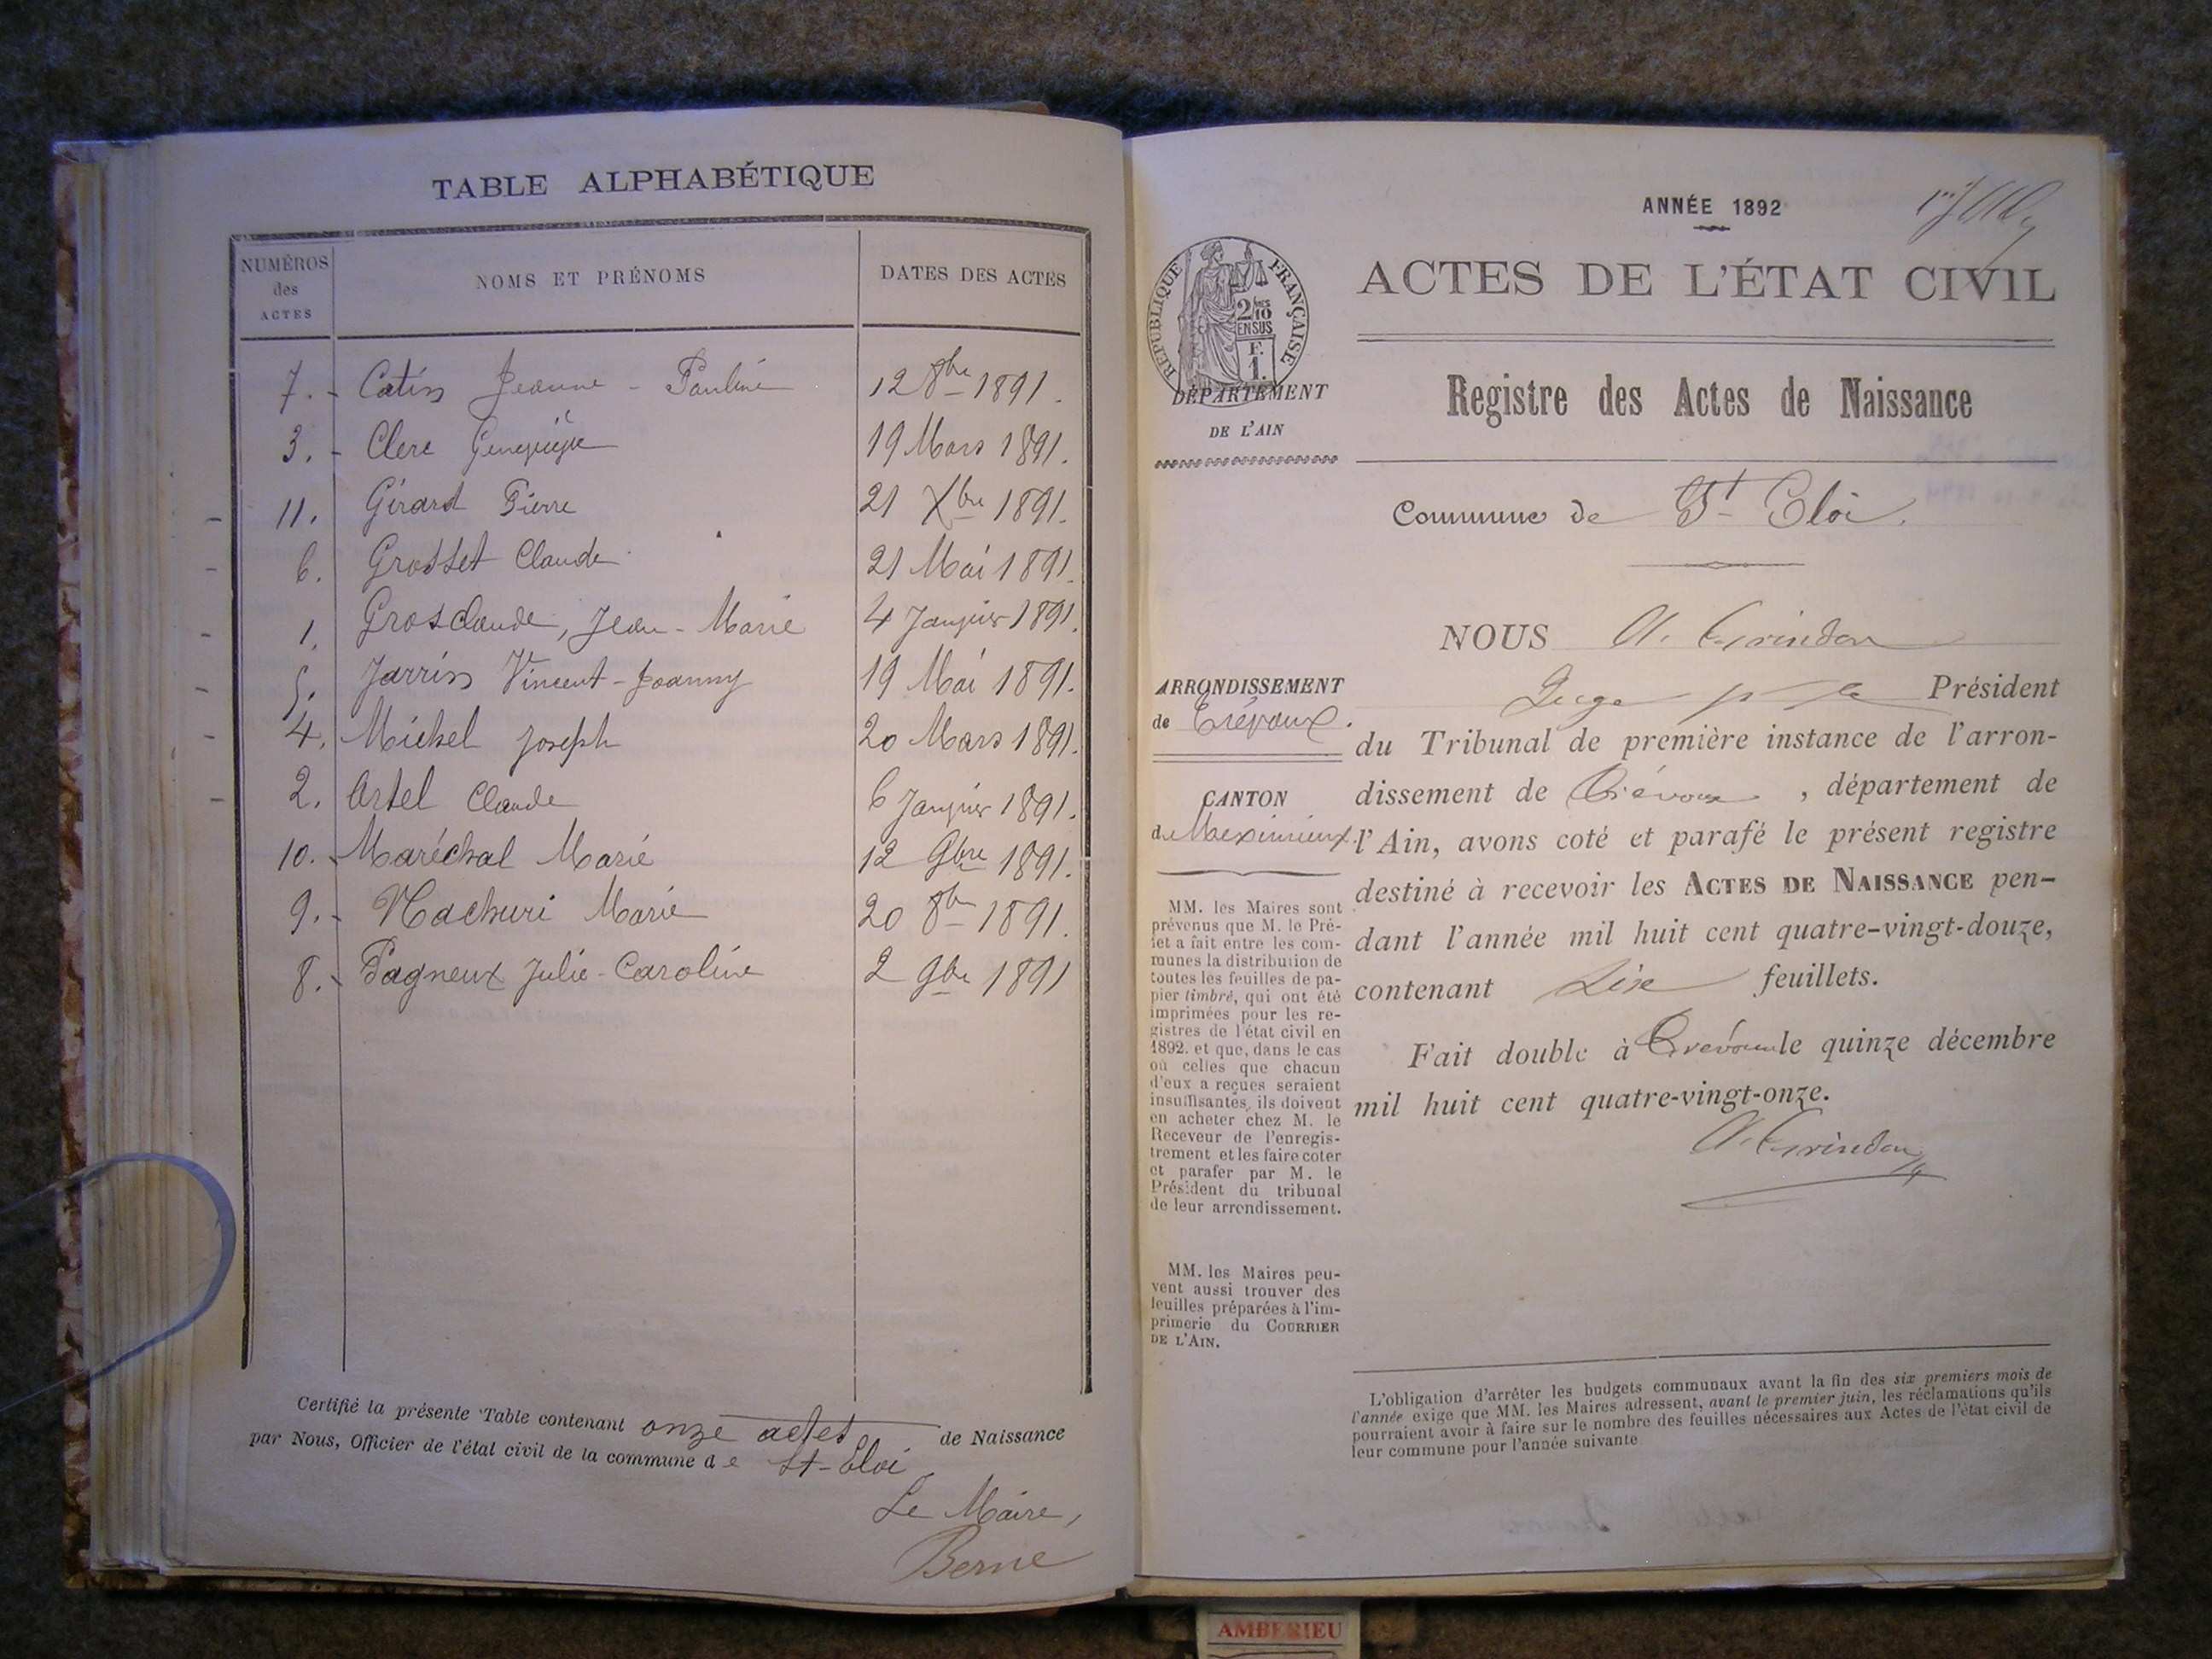 TABLE ALPHABÉTIQUE
NUMÉROS
des
ACTES
NOMS ET PRÉNOMS
DATES DES ACTES
7. - Catin Jeanne - Pauline 12 8bre 1891.
3. - Clerc Geneviève 19 Mars 1891.
11. Girard Pierre 21 Xbre 1891.
6. Grosset Claude 21 Mai 1891.
1. Grosclaude, Jean - Marie 4 Janvier 1891.
5. Jarrin Vincent - Joanny 19 Mai 1891.
4. Michel Joseph 20 Mars 1891.
2. Artel Claude 6 Janvier 1891.
10. - Maréchal Marie 12 9bre 1891.
9. - Machuri Marie 20 8bre 1891.
8. - Pagneux Julie - Caroline 2 9bre 1891
Certifié la présente Table contenant onze actes de Naissance
par Nous, Officier de l'état civil de la commune de St-Eloi
Le Maire,
Berne
ANNÉE 1892
ACTES DE L'ÉTAT CIVIL
RÉPUBLIQUE FRANÇAISE
2/10
EN SUS
F.
1.
DÉPARTEMENT
DE L'AIN
Registre des Actes de Naissance
Commune de St Eloi.
ARRONDISSEMENT
de Trévoux.
CANTON
de Meximieux.
MM. les Maires sont
prévenus que M. le Pré-
fet a fait entre les com-
munes la distribution de
toutes les feuilles de pa-
pier timbré, qui ont été
imprimées pour les re-
gistres de l'état civil en
1892. et que, dans le cas
où celles que chacun
d'eux a reçues seraient
insuffisantes, ils doivent
en acheter chez M. le
Receveur de l'enregis-
trement et les faire coter
et parafer par M. le
Président du tribunal
de leur arrondissement.
MM. les Maires peu-
vent aussi trouver des
feuilles préparées à l'im-
primerie du COURRIER
DE L'AIN.
NOUS A. Grindon
Juge pr le Président
du Tribunal de première instance de l'arron-
dissement de Trévoux, département de
l'Ain, avons coté et parafé le présent registre
destiné à recevoir les ACTES DE NAISSANCE pen-
dant l'année mil huit cent quatre-vingt-douze,
contenant Six feuillets.
Fait double à Trévoux le quinze décembre
mil huit cent quatre-vingt-onze.
A. Grindon
L'obligation d'arrêter les budgets communaux avant la fin des six premiers mois de
l'année exige que MM. les Maires adressent, avant le premier juin, les réclamations qu'ils
pourraient avoir à faire sur le nombre des feuilles nécessaires aux Actes de l'état civil de
leur commune pour l'année suivante
AMBERIEU